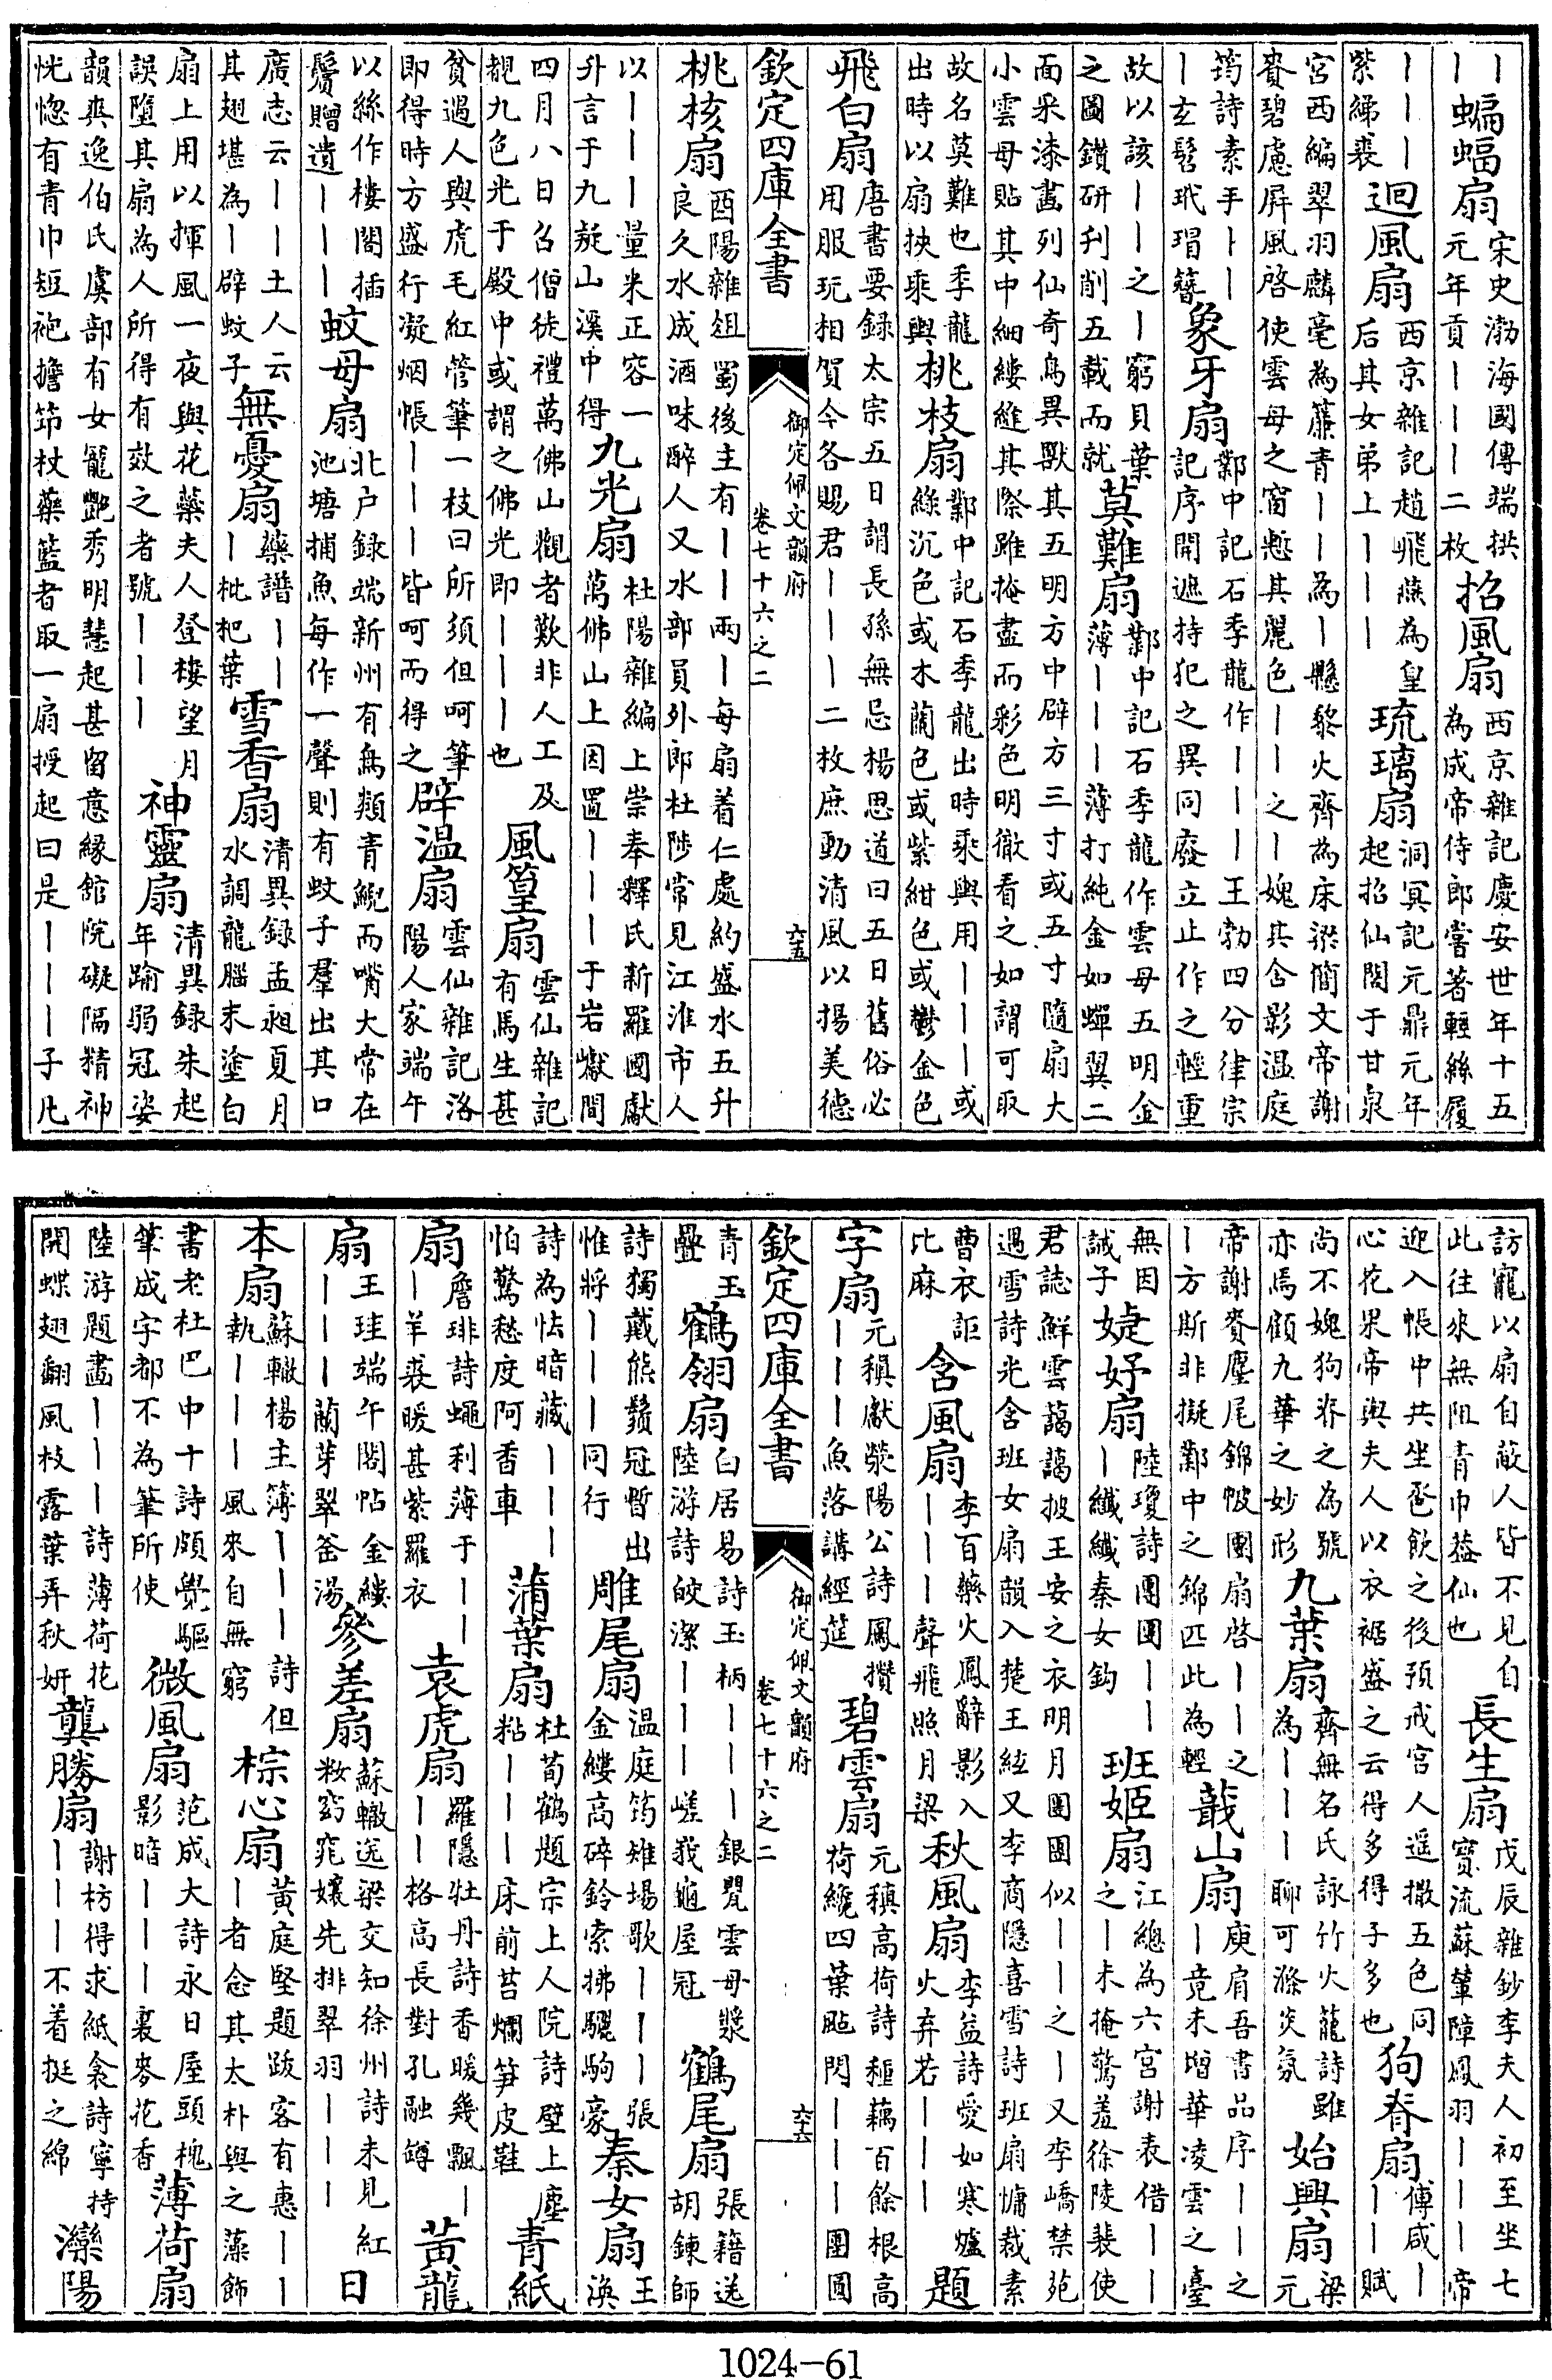 ｜｜蝙蝠扇宋史渤海國傳端拱
元年貢｜｜｜二枚招風扇西京雜記慶安世年十五
為成帝侍郎嘗著輕絲履
｜｜｜
紫綈裘迴風扇西京雜記趙飛燕為皇
后其女弟上｜｜｜琉璃扇洞冥記元鼎元年
起招仙閣于甘泉
宮西編翠羽麟毫為簾青｜｜為｜懸黎火齊為床梁簡文帝謝
賚碧慮屏風啓使雲母之窗慙其麗色｜｜之｜媿其含影溫庭
筠詩素手｜｜
｜玄髻玳瑁簪象牙扇鄴中記石季龍作｜｜｜｜王勃四分律宗
記序開遮持犯之異同廢立止作之輕重
故以該｜｜之｜窮貝葉
之圖鑽研刋削五載而就莫難扇鄴中記石季龍作雲母五明金
薄｜｜｜薄打純金如蟬翼二
面采漆畫列仙奇鳥異獸其五明方中辟方三寸或五寸隨扇大
小雲母貼其中細縷縫其際雖掩盡而彩色明徹看之如謂可取
故名莫難也季龍
出時以扇挾乘輿桃枝扇鄴中記石季龍出時乘輿用｜｜｜或
綠沉色或木蘭色或紫紺色或鬱金色
飛白扇唐書要録太宗五日謂長孫無忌楊思道曰五日舊俗必
用服玩相賀今各賜君｜｜｜二枚庶動清風以揚美德
欽定四庫全書
御定佩文韻府
卷七十六之二
六五
桃核扇酉陽雜俎蜀後主有｜｜兩｜每扇着仁處約盛水五升
良久水成酒味醉人又水部員外郎杜陟常見江淮市人
以｜｜｜量米正容一
升言于九嶷山溪中得九光扇杜陽雜編上崇奉釋氏新羅國獻
萬佛山上因置｜｜｜于岩巘間
四月八日召僧徒禮萬佛山觀者歎非人工及
覩九色光于殿中或謂之佛光即｜｜｜也風篁扇雲仙雜記
有馬生甚
貧遇人與虎毛紅管筆一枝曰所須但呵筆
即得時方盛行凝烟帳｜｜｜皆呵而得之辟温扇雲仙雜記洛
陽人家端午
以絲作樓閣插
鬢贈遺｜｜｜蚊母扇北户録端新州有鳥類青鶂而嘴大常在
池塘捕魚每作一聲則有蚊子羣出其口
廣志云｜｜土人云
其翅堪為｜辟蚊子無憂扇藥譜｜｜
｜枇杷葉雪香扇清異録孟昶夏月
水調龍腦末塗白
扇上用以揮風一夜與花蘂夫人登樓望月
誤墮其扇為人所得有效之者號｜｜｜神靈扇清異録朱起
年踰弱冠姿
韻爽逸伯氏虞部有女寵艷秀明慧起甚留意緣館院礙隔精神
恍惚有青巾短袍擔笻杖藥籃者取一扇授起曰是｜｜｜子凡
訪寵以扇自蔽人皆不見自
此往來無阻青巾葢仙也長生扇戊辰雜鈔李夫人初至坐七
寳流蘇輦障鳳羽｜｜｜帝
迎入帳中共坐巹飲之後預戒宫人遥撒五色同
心花果帝與夫人以衣裾盛之云得多得子多也狗脊扇傅咸｜
｜｜賦
尚不媿狗脊之為號
亦焉顧九華之妙形九葉扇齊無名氏詠竹火籠詩雖
為｜｜｜聊可滌炎氛始興扇梁
元
帝謝賚麈尾錦帔團扇啓｜｜之
｜方斯非擬鄴中之錦匹此為輕蕺山扇庾肩吾書品序｜｜之
｜竟未增華凌雲之臺
無因
誡子婕妤扇陸瓊詩團團｜｜
｜纎纎秦女鈎班姬扇江總為六宮謝表借｜｜
之｜未掩驚羞徐陵裴使
君誌鮮雲藹藹披王安之衣明月團團似｜｜之｜又李嶠禁苑
遇雪詩光含班女扇韻入楚王絃又李商隱喜雪詩班扇慵裁素
曹衣詎
比麻含風扇李百藥火鳳辭影入
｜｜｜聲飛照月梁秋風扇李益詩愛如寒爐
火弃若｜｜｜題
字扇元稹獻滎陽公詩鳳攢
｜｜｜魚落講經筵碧雲扇元稹高荷詩種藕百餘根高
荷纔四葉颭閃｜｜｜團圓
欽定四庫全書
御定佩文韻府
卷七十六之二
六六
青玉
疊鶴翎扇白居易詩玉柄｜｜｜銀甖雲母漿
陸游詩皎潔｜｜｜嵯峩龜屋冠鶴尾扇張籍送
胡鍊師
詩獨戴熊鬚冠暫出
惟將｜｜｜同行雕尾扇温庭筠雉場歌｜｜｜張
金縷高碎鈴索拂驪駒豪秦女扇王
渙
詩為怯暗藏｜｜｜
怕驚愁度阿香車蒲葉扇杜荀鶴題宗上人院詩壁上塵
粘｜｜｜床前苔爛笋皮鞋青紙
扇詹琲詩蠅利薄于｜｜
｜羊裘暖甚紫羅衣袁虎扇羅隱牡丹詩香暖幾飄｜
｜｜格高長對孔融罇黃龍
扇王珪端午閣帖金縷
｜｜｜蘭芽翠釜湯參差扇蘇轍送梁交知徐州詩未見紅
粧窈窕孃先排翠羽｜｜｜日
本扇蘇轍楊主簿｜｜｜詩但
執｜｜｜風來自無窮棕心扇黃庭堅題跋客有惠｜｜
｜者念其太朴與之藻飾
書老杜巴中十詩頗覺驅
筆成字都不為筆所使微風扇范成大詩永日屋頭槐
影暗｜｜｜裏麥花香薄荷扇
陸游題畫｜｜｜詩薄荷花
開蝶翅翻風枝露葉弄秋妍龔勝扇謝枋得求紙衾詩寧持
｜｜｜不着挺之綿灤陽
1024-61